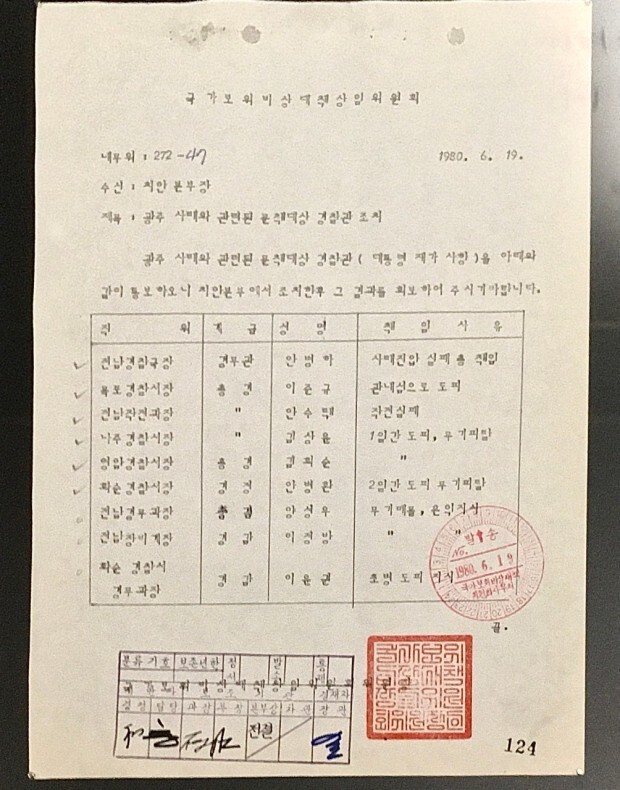 국가보위비상대책상임위원회
내무위 : 272-47 1980. 6. 19.
수신 : 치안본부장
제목 : 광주 사태와 관련된 문책대상 경찰관 조치
광주 사태와 관련된 문책대상 경찰관 ( 대통령 재가 사항 )을 아래와
같이 통보하오니 치안본부에서 조치한후 그 결과를 회보하여 주시기바랍니다.
직 위 계 급 성 명 책 임 사 유
전남경찰국장 경무관 안병하 사태진압 실패 총 책임
목포경찰서장 총 경 이준규 관내섬으로 도피
전남작전과장 " 안수택 작전실패
나주경찰서장 " 김상윤 1일간 도피, 무기피탈
영암경찰서장 총 경 김희순 "
화순경찰서장 경정 안병환 2일간 도피 무기피탈
전남경무과장 총 경 양성우 무기매몰, 은익지시
전남장비계장 경 감 이정방 " "
화순 경찰서
경무과장 경 감 이윤권 초병 도피 지시
발송
No.
1980. 6. 19
끌.
분류기호 보존년한 정 발
국가보위비상대책상임위원회위원장
경정 담당 과장 부장 본부장 차관 장관
전결
124